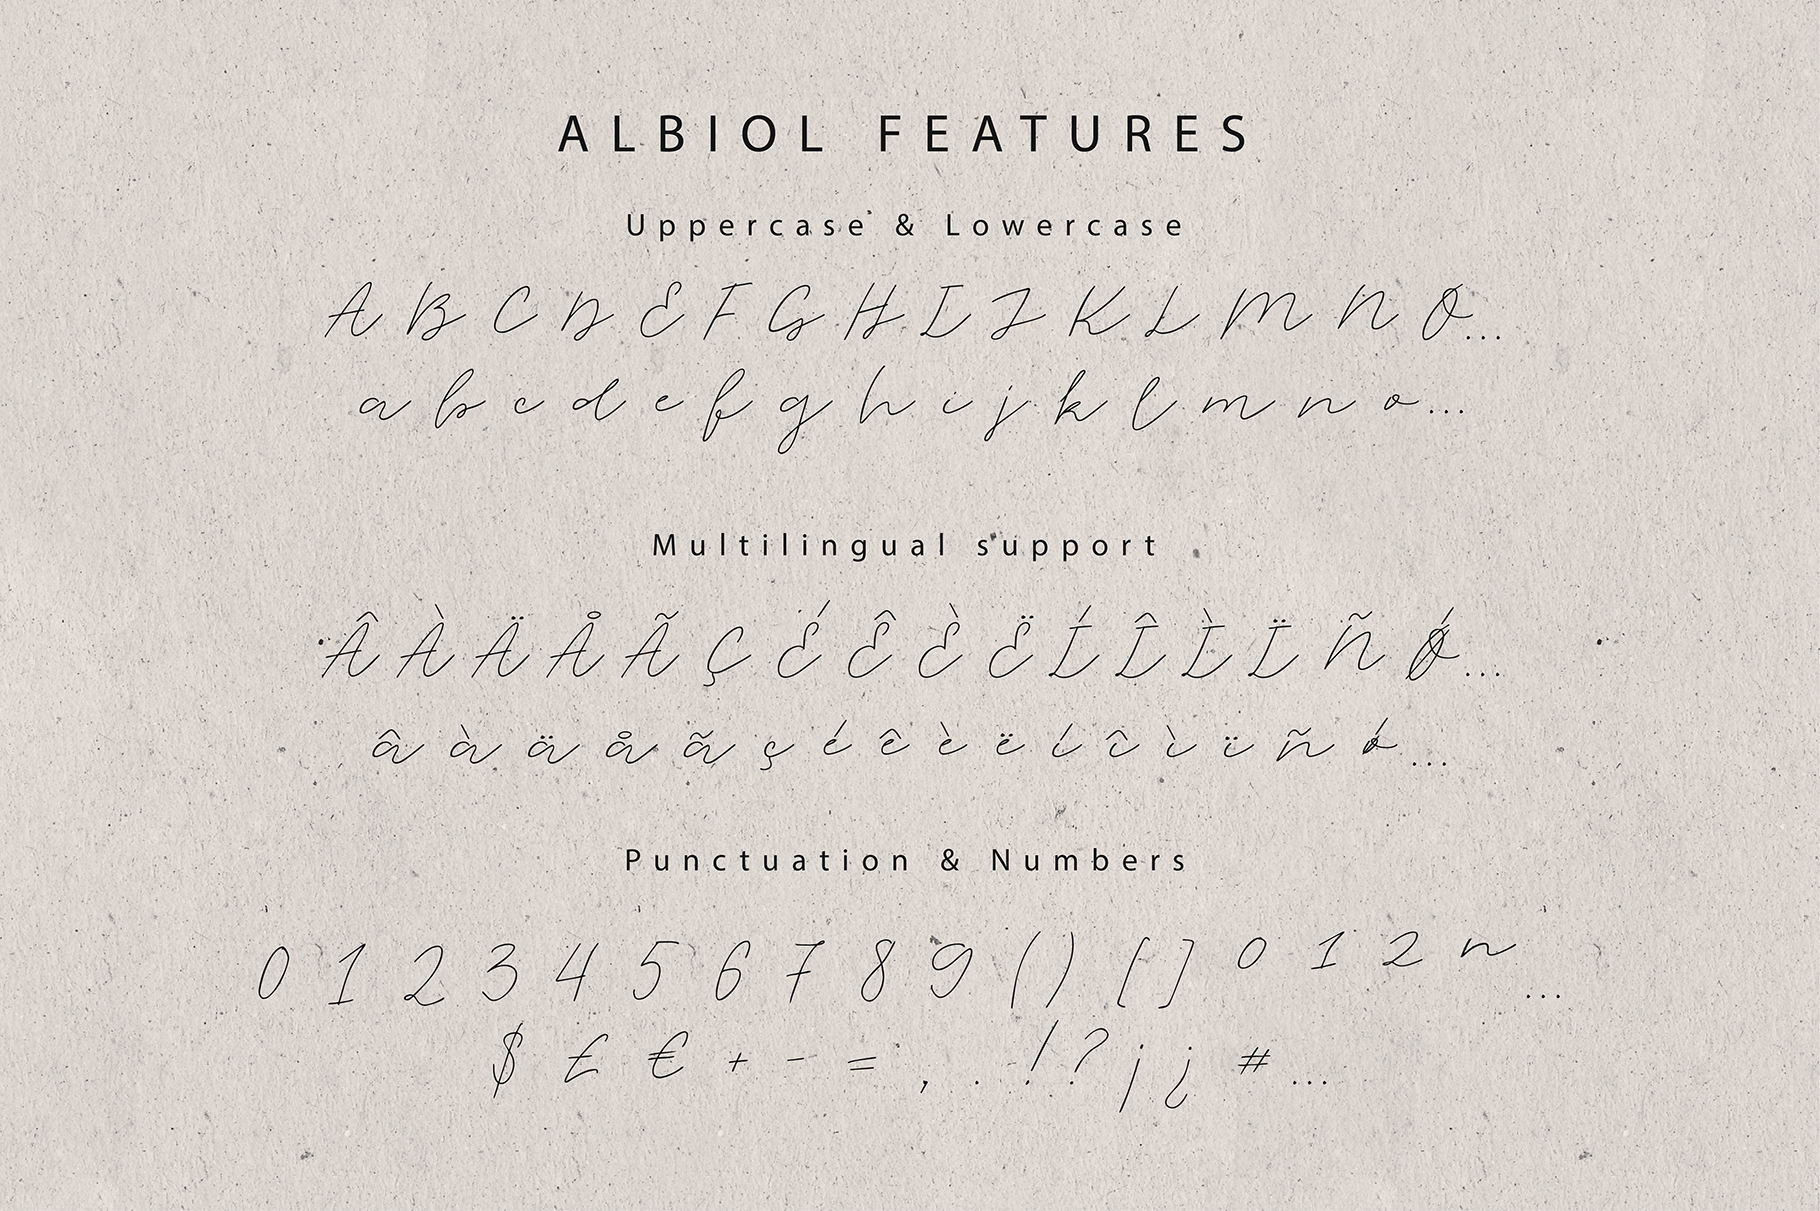 ALBIOL FEATURES
Uppercase & Lowercase
A B C D E F G H I J K L M N O...
a b c d e f g h i j k l m n o...
Multilingual support
Â À Ä Å Ã Ç É Ê È Ë Í Î Ì Ï Ñ Ǿ...
â à ä å ã ç é ê è ë í î ì ï ñ ǿ...
Punctuation & Numbers
0 1 2 3 4 5 6 7 8 9 ( ) [ ] ⁰ ¹ ² ⁿ...
$ £ € + - = , . ! ? ¡ ¿ #...